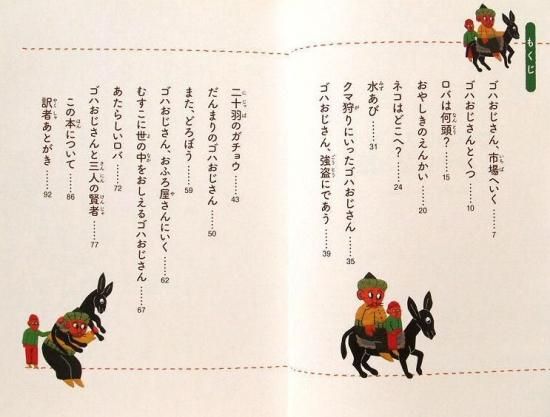 もくじ
ゴハおじさん、市場へいく……7
ゴハおじさんとくつ……10
ロバは何頭?……15
おやしきのえんかい……20
ネコはどこへ?……24
水あび……31
クマ狩りにいったゴハおじさん……35
ゴハおじさん、強盗にであう……39
二十羽のガチョウ……43
だんまりのゴハおじさん……50
また、どろぼう……59
ゴハおじさん、おふろ屋さんにいく……62
むすこに世の中をおしえるゴハおじさん……67
あたらしいロバ……72
ゴハおじさんと三人の賢者……77
この本について……86
訳者あとがき……92